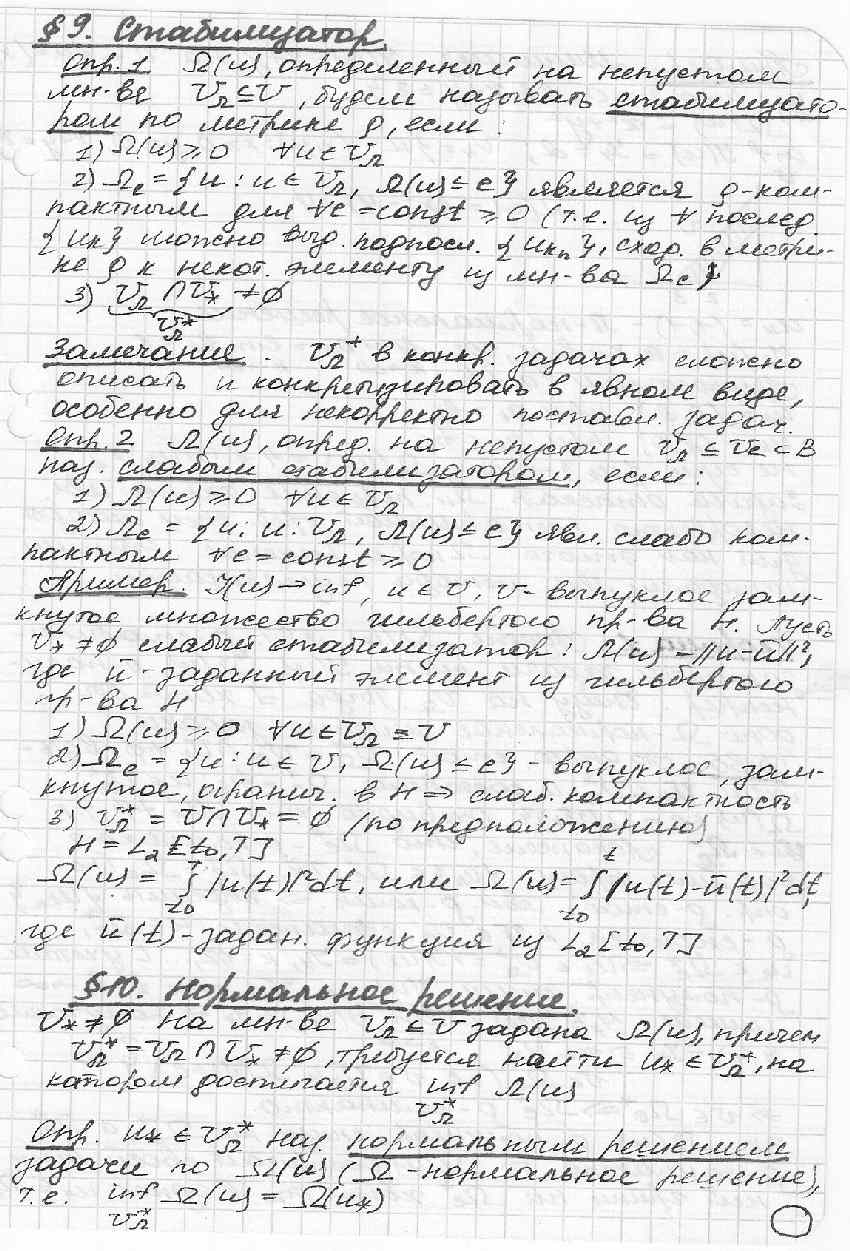 § 9. Стабилизатор.
Опр. 1 Ω(u), определенный на непустом
мн-ве U_Ω ⊆ U, будем называть стабилизато-
ром по метрике ρ, если:
1) Ω(u) ≥ 0 ∀u ∈ U_Ω
2) Ω_c = {u : u ∈ U_Ω, Ω(u) ≤ c} является ρ-ком-
пактным для ∀c = const ≥ 0 (т.е. из ∀ послед.
{u_k} можно выд. подпосл. {u_kn}, сход. в метри-
ке ρ к некот. элементу из мн-ва Ω_c)
3) U_Ω ∩ U_* ≠ ∅
U_Ω^*
Замечание. U_Ω^* в конкр. задачах сложно
описать и конкретизировать в явном виде,
особенно для некорректно поставл. задач.
Опр. 2 Ω(u), опред. на непустом U_Ω ⊆ U ⊂ B
наз. слабым стабилизатором, если:
1) Ω(u) ≥ 0 ∀u ∈ U_Ω
2) Ω_c = {u : u : U_Ω, Ω(u) ≤ c} явл. слабо ком-
пактным ∀c = const ≥ 0
Пример. J(u) → inf, u ∈ U, U - выпуклое зам-
кнутое множество гильбертого пр-ва H. Пусть
U_* ≠ ∅ слабый стабилизатор: Ω(u) = ||u - ū||²,
где ū - заданный элемент из гильбертого
пр-ва H
1) Ω(u) ≥ 0 ∀u ∈ U_Ω = U
2) Ω_c = {u : u ∈ U, Ω(u) ≤ c} - выпуклое, зам-
кнутое, огранич. в H ⇒ слаб. компактность
3) U_Ω^* = U ∩ U_* = ∅ (по предположению)
H = L₂[t₀, T]
Ω(u) = ∫_{t₀}^{T} |u(t)|² dt, или Ω(u) = ∫_{t₀}^{t} |u(t) - ū(t)|² dt,
где ū(t) - задан. функция из L₂[t₀, T]
§ 10. Нормальное решение.
U_* ≠ ∅ На мн-ве U_Ω ⊆ U задана Ω(u), причем
U_Ω^* = U_Ω ∩ U_* ≠ ∅, требуется найти u_* ∈ U_Ω^*, на
котором достигается inf Ω(u)
U_Ω^*
Опр. u_* ∈ U_Ω^* наз. нормальным решением
задачи по Ω(u) (Ω - нормальное решение),
т.е. inf Ω(u) = Ω(u_*)
U_Ω^*